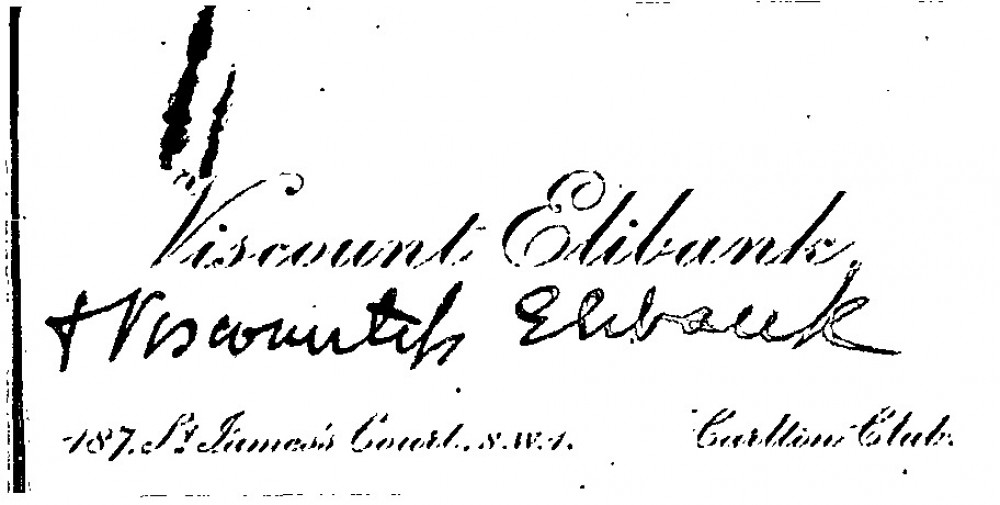 Viscount Elibank,
+ Viscountess Elibank
187, St James's Court, S.W.1. Carlton Club.